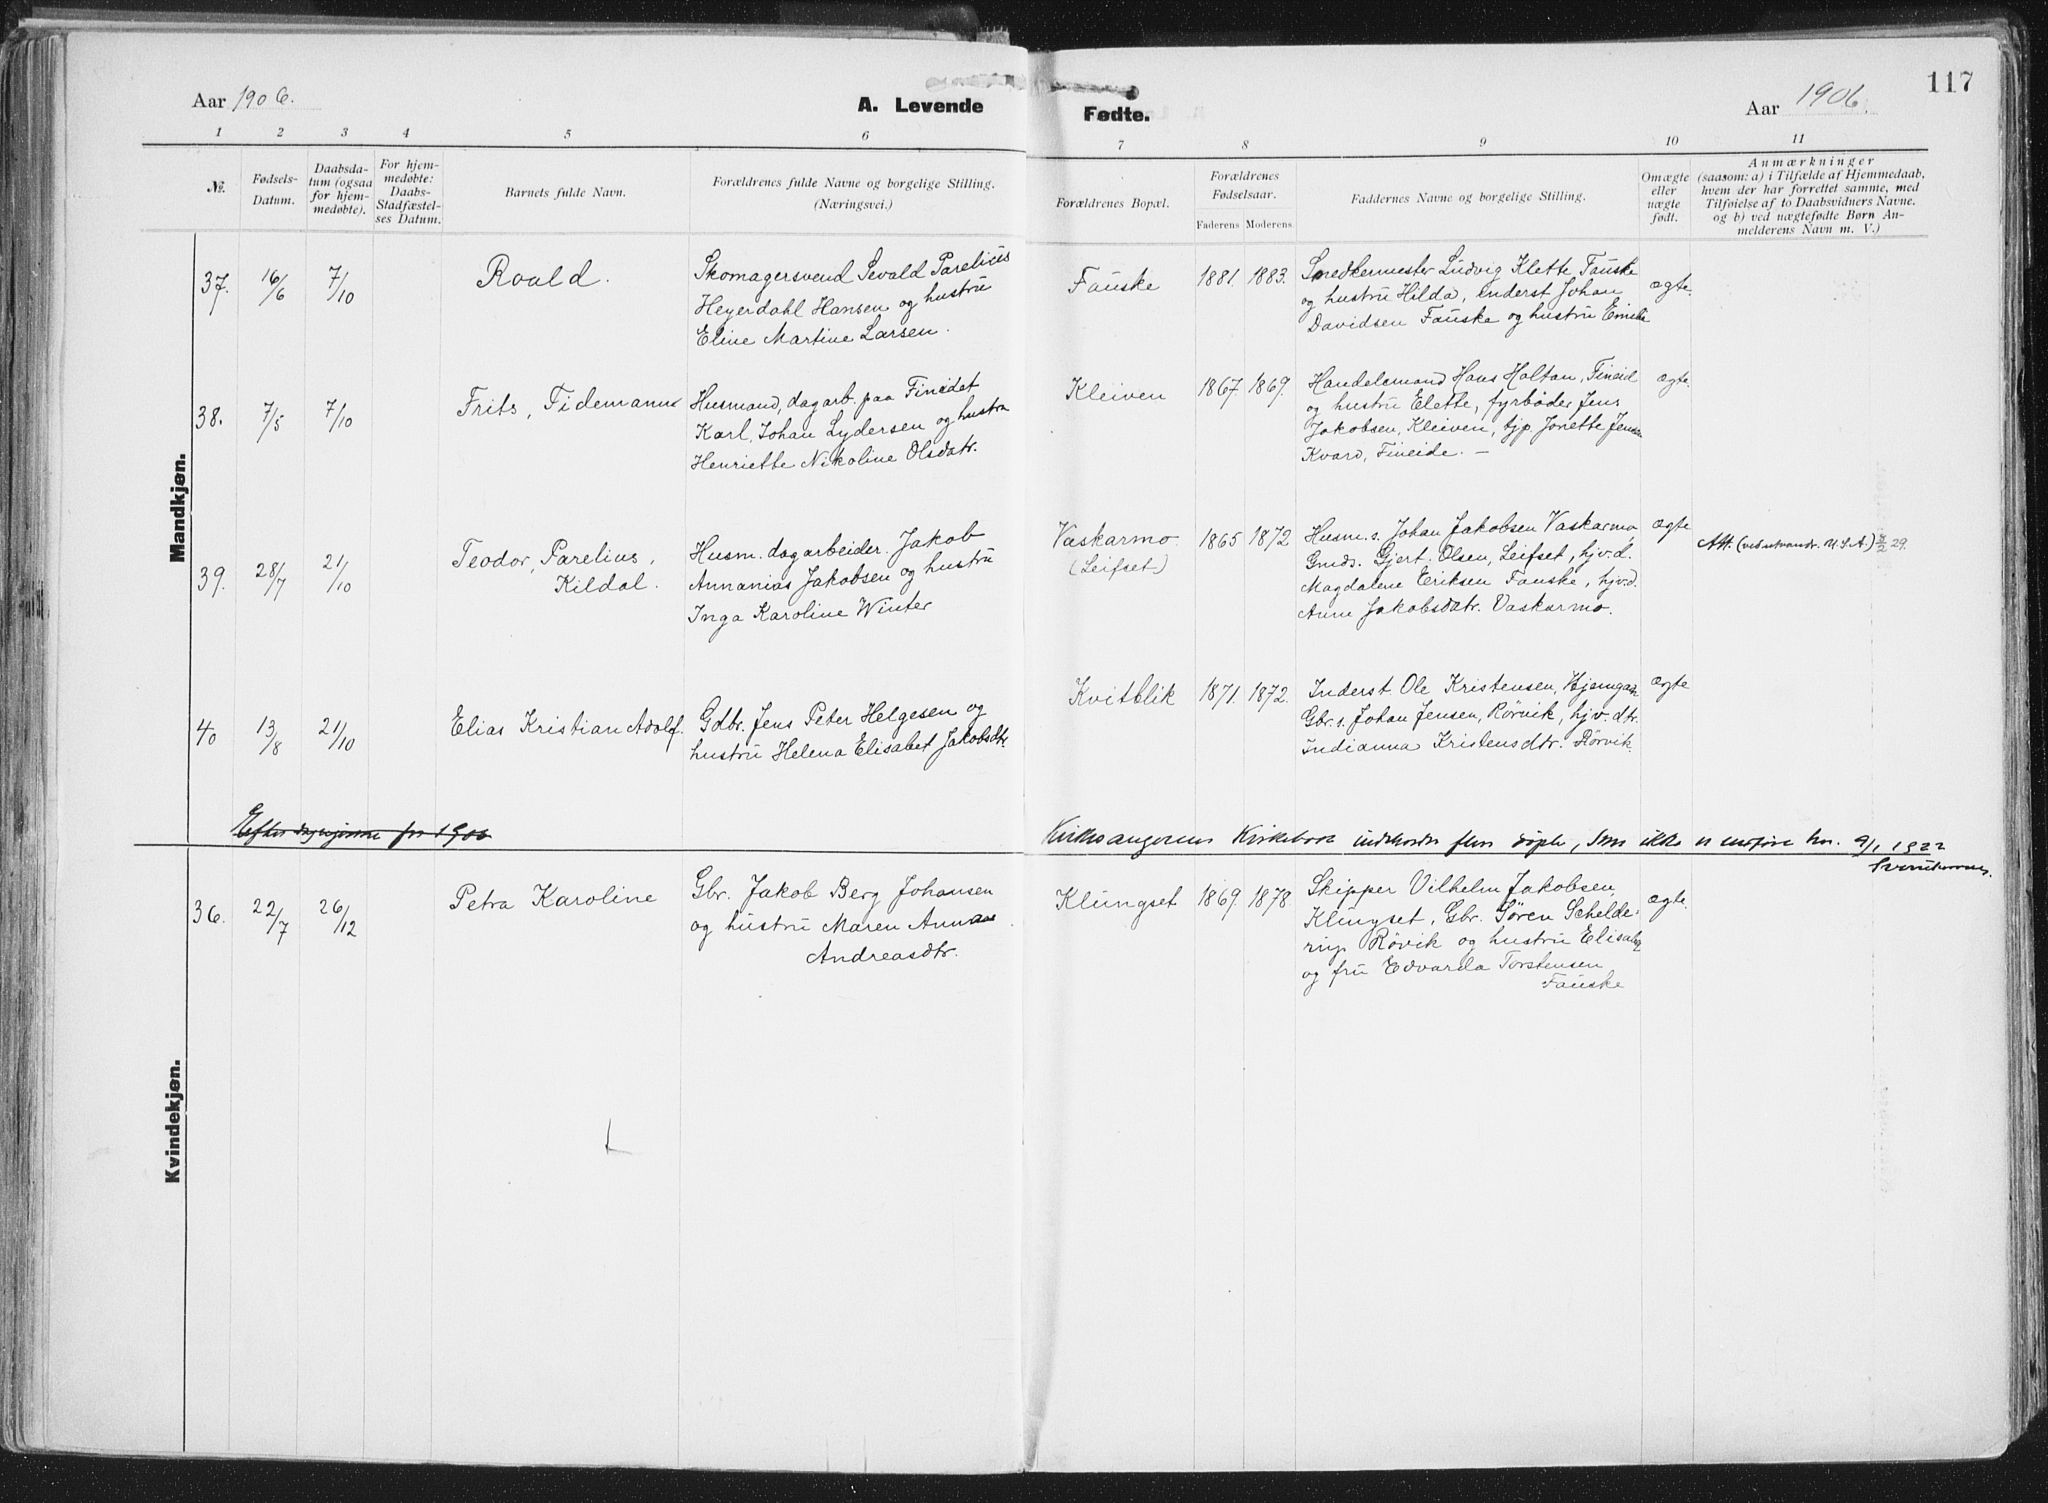 117
Aar 1906.
A. Levende Fødte.
Aar 1906.
1 2 3 4 5 6 7 8 9 10 11
№.
Fødsels-
Datum.
Daabsda-
tum (ogsaa
for hjem-
medøbte).
For hjem-
medøbte:
Daabs-
Stadfæstel-
ses Datum.
Barnets fulde Navn.
Forældrenes fulde Navne og borgelige Stilling.
(Næringsvei.)
Forældrenes Bopæl.
Forældrenes
Fødselsaar.
Faderens Moderens.
Faddernes Navne og borgelige Stilling.
Om ægte
eller
uægte
født.
Anmærkninger
(saasom: a) i Tilfælde af Hjemmedaab,
hvem der har forrettet samme, med
Tilføielse af to Daabsvidners Navne.
og b) ved uægtefødte Børn An-
melderens Navn m. V.)
Mandkjøn.
37. 16/6 7/10
Roald.
Skomagersvend Sevald Parelius
Heyerdahl Hansen og hustru
Eline Martine Larsen.
Fauske 1881. 1883.
Snedkermester Ludvig Klette Fauske
og hustru Hilda, inderst Johan
Davidsen Fauske og hustru Emelie
ægte.
38. 7/5 7/10
Frits, Tidemann
Husmand, dagarb. paa Fineidet
Karl, Johan Lydersen og hustru
Henriette Nikoline Olsdatr.
Kleiven 1867. 1869.
Handelsmand Hans Holtan, Fineid
og hustru Elette, fyrbøder Jens
Jakobsen, Kleiven, tjp. Jonette Jensen
Kvard, Fineide. —
ægte
39. 28/7 21/10
Teodor, Parelius,
Kildal.
Husm. dagarbeider. Jakob
Annanias Jakobsen og hustru
Inga Karoline Winter
Vaskarmo
(Leifset)
1865 1872
Husm. s. Johan Jakobsen Vaskarmo,
Gmds. Gjert. Olsen, Leifset, hjv.d.
Magdalene Eriksen Fauske, hjv.d.
Anne Jakobsdatr. Vaskarmo.
ægte
Att. (ved utvandr. U.S.A.) 29.
40 13/8 21/10
Elias Kristian Adolf.
Gdbr. Jens Peter Helgesen og
hustru Helena Elisabet Jakobsdtr.
Kvitblik 1871. 1872.
Inderst Ole Kristensen, Hjemgam
Gbr. s. Johan Jensen, Rørvik, hjv. dtr.
Indianna Kristensdtr. Rørvik
ægte
for 1906
Kirkesangerens Kirkebok indeholder flere døpte, som ikke er indført her. 9/1 1922
Kvindekjøn.
36. 22/7 26/12
Petra Karoline
Gbr. Jakob Berg Johansen
og hustru Maren Anna
Andreasdtr.
Klungset 1869. 1878.
Skipper Vilhelm Jakobsen,
Klungset, Gbr. Søren Schelde-
rup Røvik og hustru Elisabeg
og fru Edvarda Torstensen
Fauske
ægte.